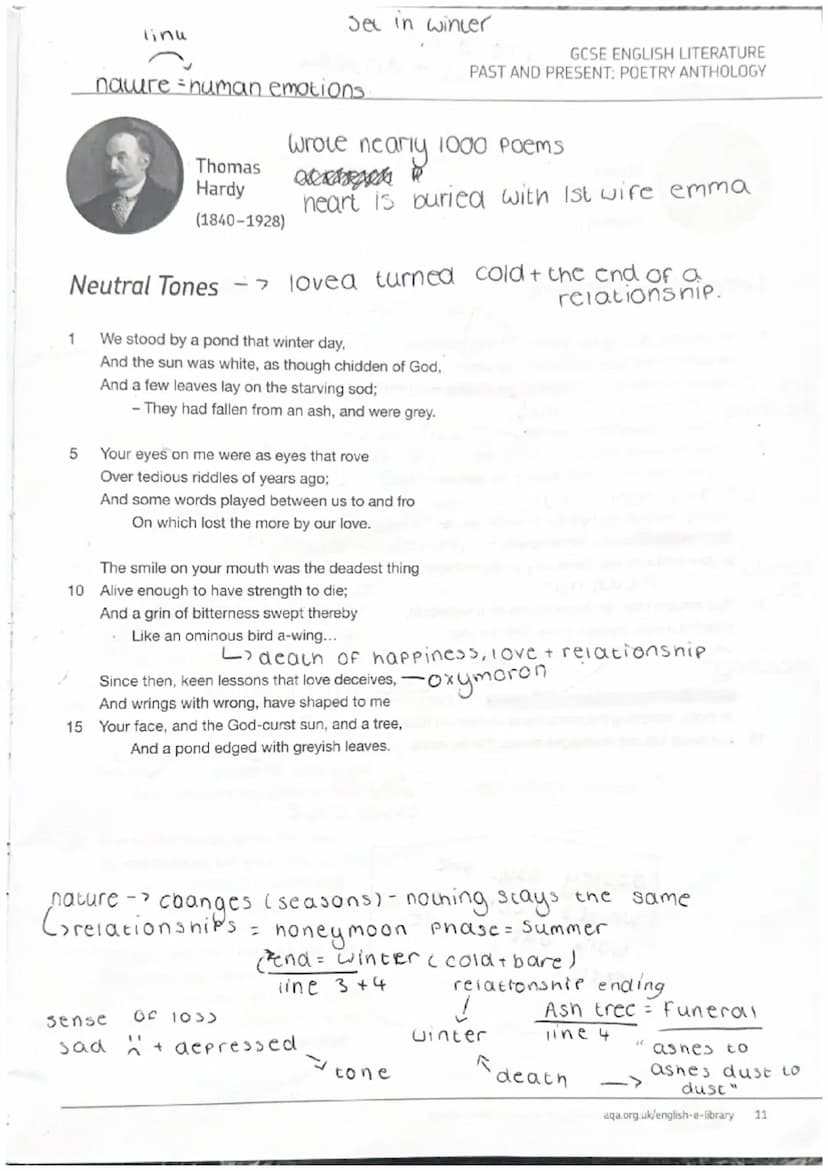 set in winter
link
nature = human emotions
GCSE ENGLISH LITERATURE
PAST AND PRESENT: POETRY ANTHOLOGY
Thomas
Hardy
(1840–1928)
wrote nearly 1000 poems
heart is buried with 1st wife emma
Neutral Tones -> loved turned cold + the end of a
relationship.
1 We stood by a pond that winter day,
And the sun was white, as though chidden of God,
And a few leaves lay on the starving sod;
– They had fallen from an ash, and were grey.
5 Your eyes on me were as eyes that rove
Over tedious riddles of years ago;
And some words played between us to and fro
On which lost the more by our love.
The smile on your mouth was the deadest thing
10 Alive enough to have strength to die;
And a grin of bitterness swept thereby
Like an ominous bird a-wing...
↳ death of happiness, love + relationship
Since then, keen lessons that love deceives, — oxymoron
And wrings with wrong, have shaped to me
15 Your face, and the God-curst sun, and a tree,
And a pond edged with greyish leaves.
nature -> changes (seasons) - nothing stays the same
↳ relationships = honeymoon phase = summer
end = winter (cold + bare)
line 3 + 4
relationship ending
↓
winter
↖ death ->
Ash tree = Funeral
line 4
"ashes to
ashes dust to
dust"
sense of loss
sad :( + depressed
↘ tone
aqa.org.uk/english-e-library 11